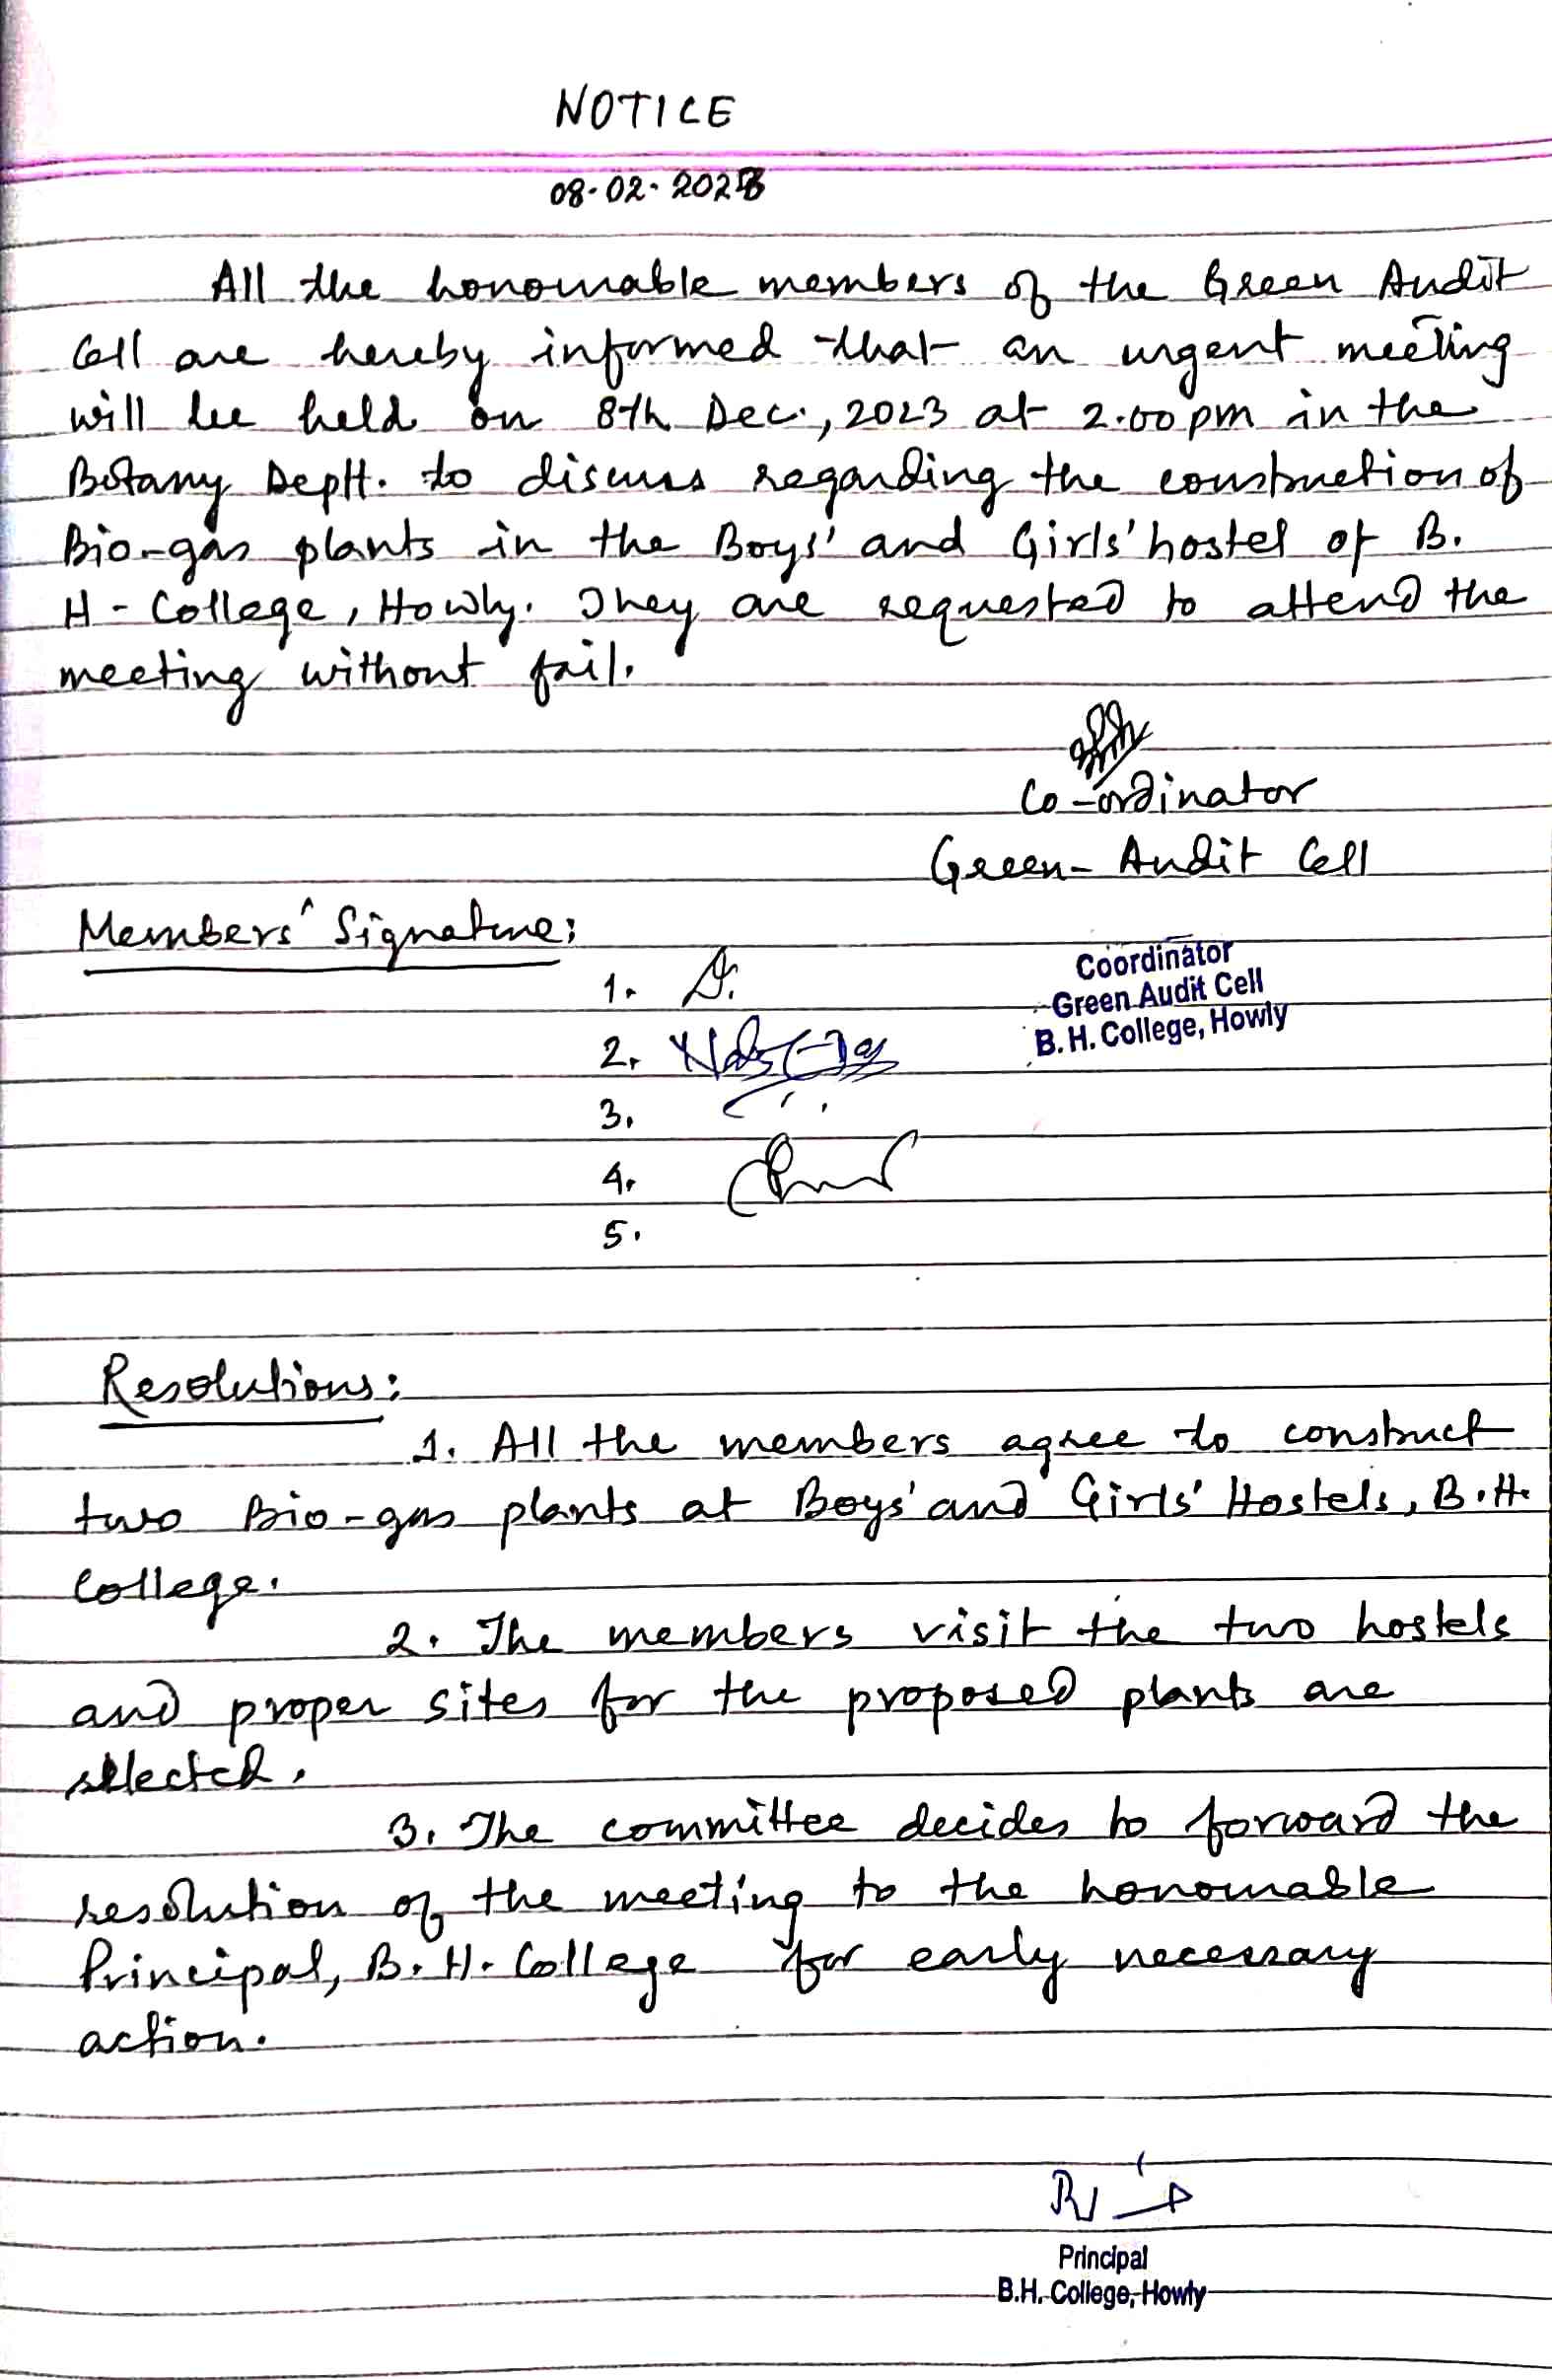 NOTICE
08-02-2023
All the honourable members of the Green Audit
Cell are hereby informed that an urgent meeting
will be held on 8th Dec., 2023 at 2.00 pm in the
Botany Deptt. to discuss regarding the construction of
Bio-gas plants in the Boys' and Girls' hostel of B.
H-College, Howly. They are requested to attend the
meeting without fail.
Co-ordinator
Green-Audit Cell
Members' Signature:
Coordinator
1.
Green Audit Cell
2.
B. H. College, Howly
3.
4.
5.
Resolutions:
1. All the members agree to construct
two Bio-gas plants at Boys' and Girls' Hostels, B.H.
College.
2. The members visit the two hostels
and proper sites for the proposed plants are
selected.
3. The committee decides to forward the
resolution of the meeting to the honourable
Principal, B. H. College for early necessary
action.
Principal
B.H. College, Howly